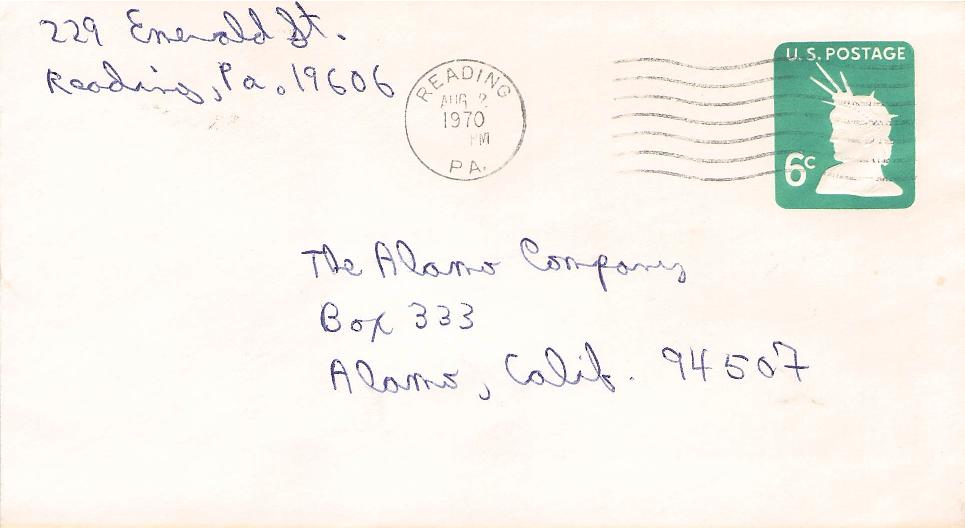 229 Emerald St.
Reading, Pa. 19606
READING
AUG 2
1970
PM
PA.
U.S. POSTAGE
6c
The Alamo Company
Box 333
Alamo, Calif. 94507